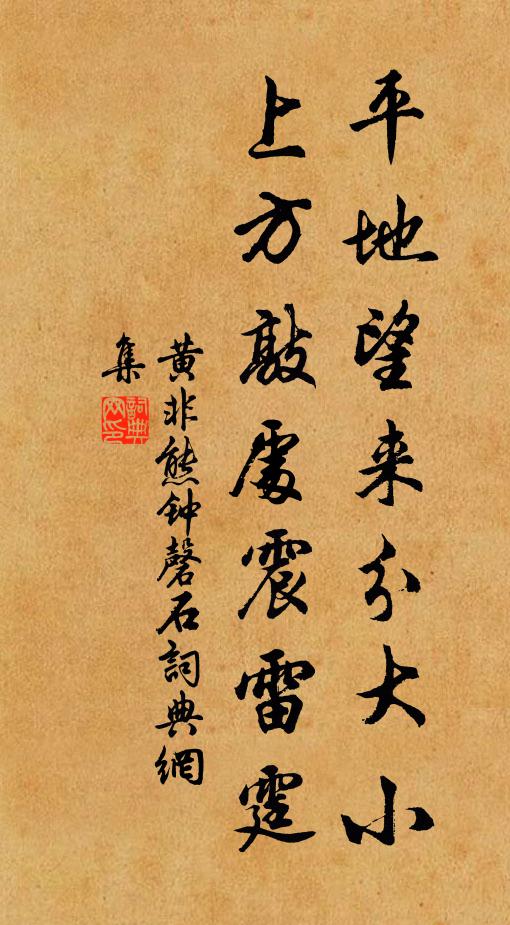 平地望来分大小
上方敲處震雷霆
黄非熊钟磬石詞典網
集
詞典
网印